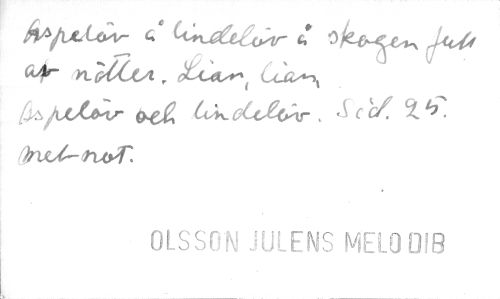 Aspelöv å lindelöv å skogen full
av nötter. Lian, lian,
Aspelöv och lindelöv. Sid. 25.
mel-not.
OLSSON JULENS MELODIB